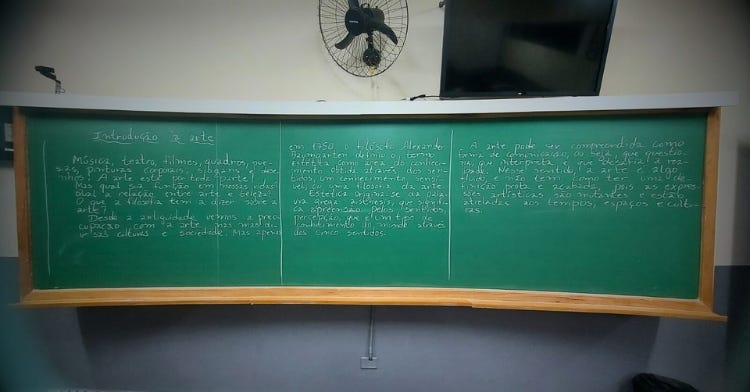 Introdução a arte
Música, teatro, filmes, quadros, poe-
sias, pinturas corporais,
A arte está por toda parte!
Mas qual sua função em nossas vidas?
Qual a relação entre arte e beleza?
O que a filosofia tem a dizer sobre a
arte?
Desde a antiguidade vemos a preo
cupação com a arte nas mais di-
versas culturas e sociedade. Mas apenas
em 1750 o filósofo Alexander
Baumgarten definiu o termo
estética como área do conheci-
mento obtida através dos sen-
tidos, um conhecimento sensí-
vel, ou uma filosofia da arte.
Estética origina-se da pala-
vra grega aisthesis, que signifi-
ca apreensão pelos sentidos,
percepção, que é um tipo de
conhecimento do mundo através
dos cinco sentidos.
A arte pode ser compreendida como
forma de comunicação, ou seja, que questio-
na, que interpreta e que desafia a rea-
lidade. Nesse sentido, a arte é algo
fluido, e não tem como ter uma de-
finição pronta e acabada, pois as expres-
sões artísticas são mutantes e estão
atreladas aos tempos, espaços e cultu-
ras.